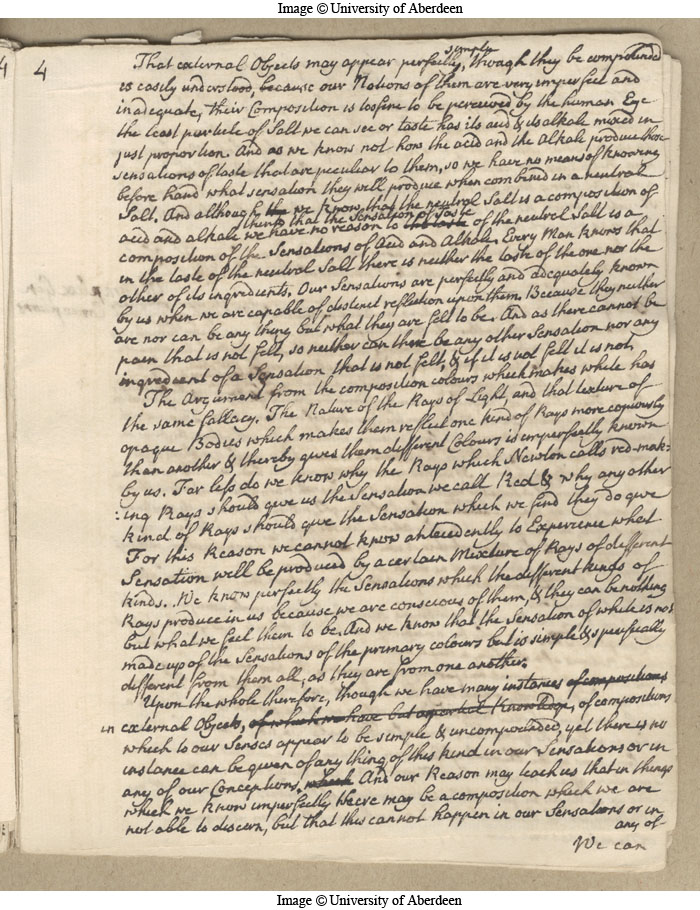 Image © University of Aberdeen
4
4
That external Objects may appear perfectly simple, though they be compounded
is easily understood, because our Notions of them are very imperfect and
inadequate, their Composition is too fine to be perceived by the human Eye
the least particle of Salt we can see or taste has its acid & its alkale mixed in
just proportion. And as we know not how the acid and the alkale produce those
sensations of taste that are peculiar to them, so we have no means of knowing
before hand what sensation they will produce when combined in a neutral
Salt, And although we know that the neutral Salt is a composition of
acid and alkale we have no reason to think that the Sensation of taste of the neutral Salt is a
composition of the Sensations of Acid and Alkale. Every Man knows that
in the taste of the neutral Salt there is neither the taste of the one nor the
other of its ingredients. Our Sensations are perfectly and adequately known
by us when we are capable of distinct reflection upon them. Because they neither
are nor can be any thing but what they are felt to be. And as there cannot be
pain that is not felt, so neither can there be any other Sensation nor any
ingredient of a Sensation that is not felt, & if it is not felt it is not.
The Argument from the composition colours which makes white has
the same fallacy. The Nature of the Rays of Light, and that texture of
opaque Bodies which makes them reflect one kind of Rays more copiously
than another & thereby gives them different Colours is imperfectly known
by us. Far less do we know why the Rays which Newton calls red-mak-
:ing Rays should give us the Sensation we call Red & why any other
kind of Rays should give the Sensation which we find they do give
For this Reason we cannot know antecedently to Experience what
Sensation will be produced by a certain Mixture of Rays of different
kinds. We know perfectly the Sensations which the different kinds of
Rays produce in us because we are conscious of them, & they can be nothing
but what we feel them to be. And we know that the Sensation of white is not
made up of the Sensations of the primary colours but is simple & specifically
different from them all, as they are from one another.
Upon the whole therefore, though we have many instances of compositions
in external Objects, of which we have but a partial Knowledge, of compositions
which to our Senses appear to be simple & uncompounded, yet there is no
instance can be given of any thing of this kind in our Sensations or in
any of our Conceptions. And our Reason may teach us that in things
which we know imperfectly there may be a composition which we are
not able to discern, but that this cannot happen in our Sensations or in
any of
We can
Image © University of Aberdeen